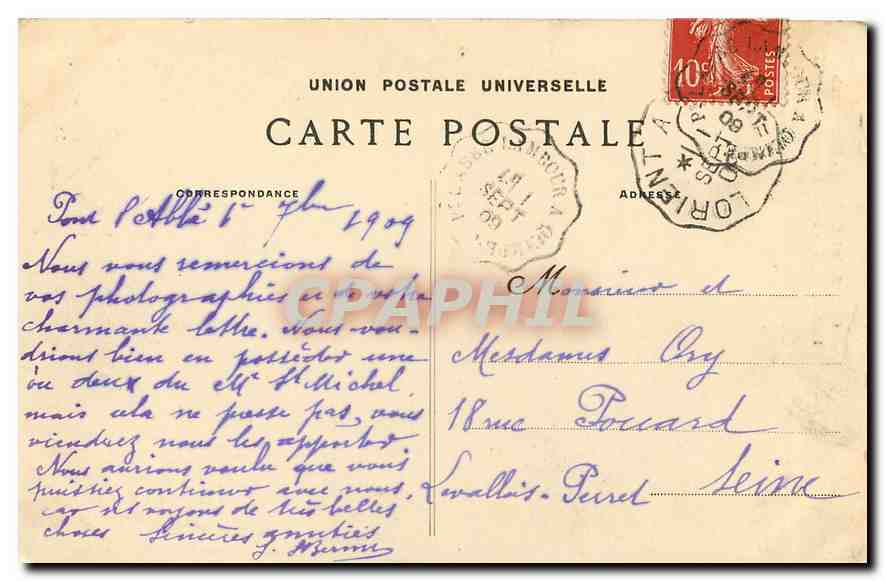 UNION POSTALE UNIVERSELLE
CARTE POSTALE
CORRESPONDANCE
ADRESSE
10c POSTES
LORIENT A
1
SEPT
09
CAPHIL
Pont l'Abbé 1r 7bre 1909
Nous vous remercions de
vos photographies et de votre
charmante lettre. Nous vou-
drions bien en posséder une
ou deux du Mt St Michel
mais cela ne presse pas, vous
viendrez nous les apporter
Nous aurions voulu que vous
puissiez continuer avec nous,
car ns voyons de très belles
choses Sincères amitiés
Monsieur et
Mesdames Ory
18 rue Fouard
Levallois-Perret Seine